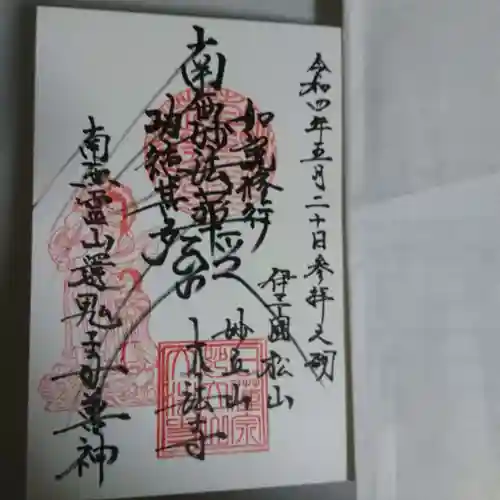 令和四年五月二十日参拝之砌
伊予國松山
妙立山
如説修行
南無妙法蓮華経
功徳甚多
法寺
南無霊山還鬼子母善神